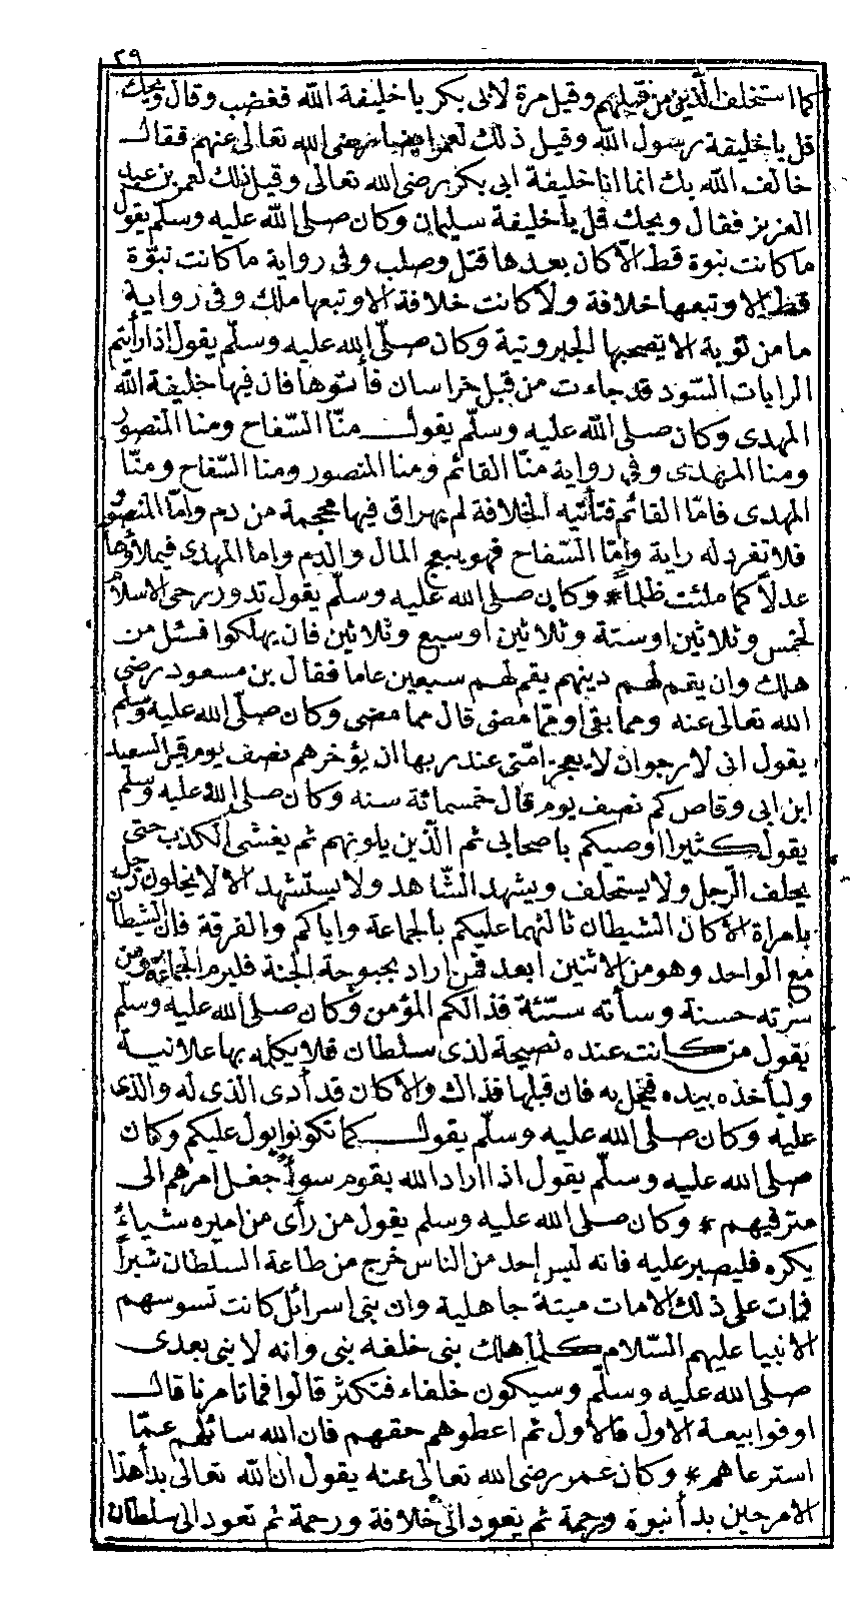 ٢٩
كما استخلف الذين من قبلهم وقيل مرة لابى بكر يا خليفة الله فغضب وقال ويحك
قل يا خليفة رسول الله وقيل ذلك لعمر ايضا رضى الله تعالى عنهم فقال
خالف الله بك انما انا خليفة ابى بكر رضى الله تعالى وقيل ذلك لعمر بن عبد
العزيز فقال ويحك قل يا خليفة سليمان وكان صلى الله عليه وسلم يقول
ما كانت نبوة قط الا كان بعدها قتل وصلب وفى رواية ما كانت نبوة
قط الا وتبعها خلافة ولا كانت خلافة الا وتبعها ملك وفى رواية
ما من نبوة الا تصحبها الجبروتية وكان صلى الله عليه وسلم يقول اذا رأيتم
الرايات السود قد جاءت من قبل خراسان فأتوها فان فيها خليفة الله
المهدى وكان صلى الله عليه وسلم يقول منا السفاح ومنا المنصور
ومنا المهدى وفى رواية منا القائم ومنا المنصور ومنا السفاح ومنا
المهدى فاما القائم فتأتيه الخلافة لم يهراق فيها محجمة من دم واما المنصور
فلا تفرد له راية واما السفاح فهو يبيع المال والدم واما المهدى فيملاؤها
عدلا كما ملئت ظلما * وكان صلى الله عليه وسلم يقول تدور رحى الاسلام
لخمس وثلاثين او ستة وثلاثين او سبع وثلاثين فان يهلكوا فسئل من
هلك وان يقم لهم دينهم يقم لهم سبعين عاما فقال بن مسعود رضى
الله تعالى عنه ومما بقى او مما مضى قال مما مضى وكان صلى الله عليه وسلم
يقول انى لارجو ان لا يعجز امتى عند ربها ان يؤخرهم نصف يوم قيل لسعيد
ابن ابى وقاص كم نصف يوم قال خمسمائة سنه وكان صلى الله عليه وسلم
يقول كثيرا اوصيكم باصحابى ثم الذين يلونهم ثم يغشى الكذب حتى
يحلف الرجل ولا يستحلف ويشهد الشاهد ولا يستشهد الا لا يخلون رجل
بامراة الا كان الشيطان ثالثهما عليكم بالجماعة واياكم والفرقة فان الشيطان
مع الواحد وهو من الاثنين ابعد فمن اراد بحبوحة الجنة فليزم الجماعة ومن
سرته حسنة وسأته سيئة فذالكم المؤمن وكان صلى الله عليه وسلم
يقول من كانت عنده نصيحة لذى سلطان فلا يكلمه بها علانية
وليأخذه بيده فيخل به فان قبلها فذاك والا كان قد أدى الذى له والذى
عليه وكان صلى الله عليه وسلم يقول كما تكونوا يول عليكم وكان
صلى الله عليه وسلم يقول اذا اراد الله بقوم سوأ جعل امرهم الى
مترفيهم * وكان صلى الله عليه وسلم يقول من رأى من اميره شياء
يكره فليصبر عليه فانه ليس احد من الناس خرج من طاعة السلطان شبرا
فمات على ذلك الا مات ميتة جاهلية وان بنى اسرائل كانت تسوسهم
الانبيا عليهم السلام كلما هلك نبى خلفه نبى وانه لا نبى بعدى
صلى الله عليه وسلم وسيكون خلفاء فتكثر قالوا فما تامرنا قال
اوفوا بيعة الاول فالاول ثم اعطوهم حقهم فان الله سائلهم عما
استرعاهم * وكان عمر رضى الله تعالى عنه يقول ان الله تعالى بدأ هذا
الامر حين بدأ نبوة ورحمة ثم يعود الى خلافة ورحمة ثم تعود الى سلطان